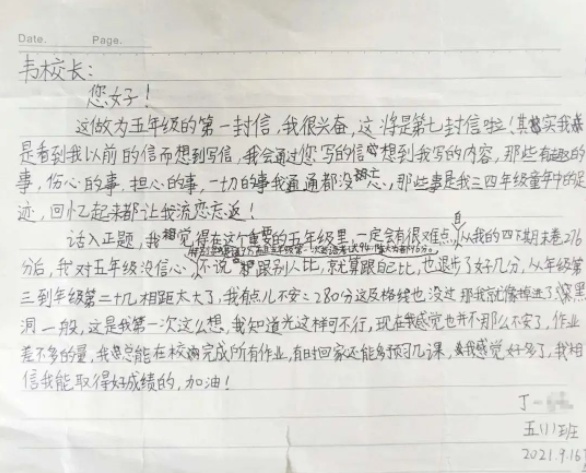 Date. Page.
韦校长：
您好！
这做为五年级的第一封信，我很兴奋，这将是第七封信啦！其实我
是看到我以前的信而想到写信，我会通过您写的信想到我写的内容，那些有趣的
事，伤心的事，担心的事，一切的事我通通都没忘，那些事是我三四年级童年中的足
迹，回忆起来都让我流恋忘返！
话入正题，我觉得在这个重要的五年级里，一定会有很难点，自从我的四下期末卷276
分后，我对五年级没信心，不说想跟别人比，就算跟自己比，也退步了好几分，从年级第
三到年级第二十几相距太大了，我有点儿不安：280分这及格线也没过那我就像掉进了黑
洞一般，这是我第一次这么想，我知道光这样可不行，现在我感觉也并不那么不安了，作业
差不多的量，我总能在校内完成所有作业，有时回家还能多预习几课，我感觉好多了，我相
信我能取得好成绩的，加油！
丁一
五(1)班
2021.9.16